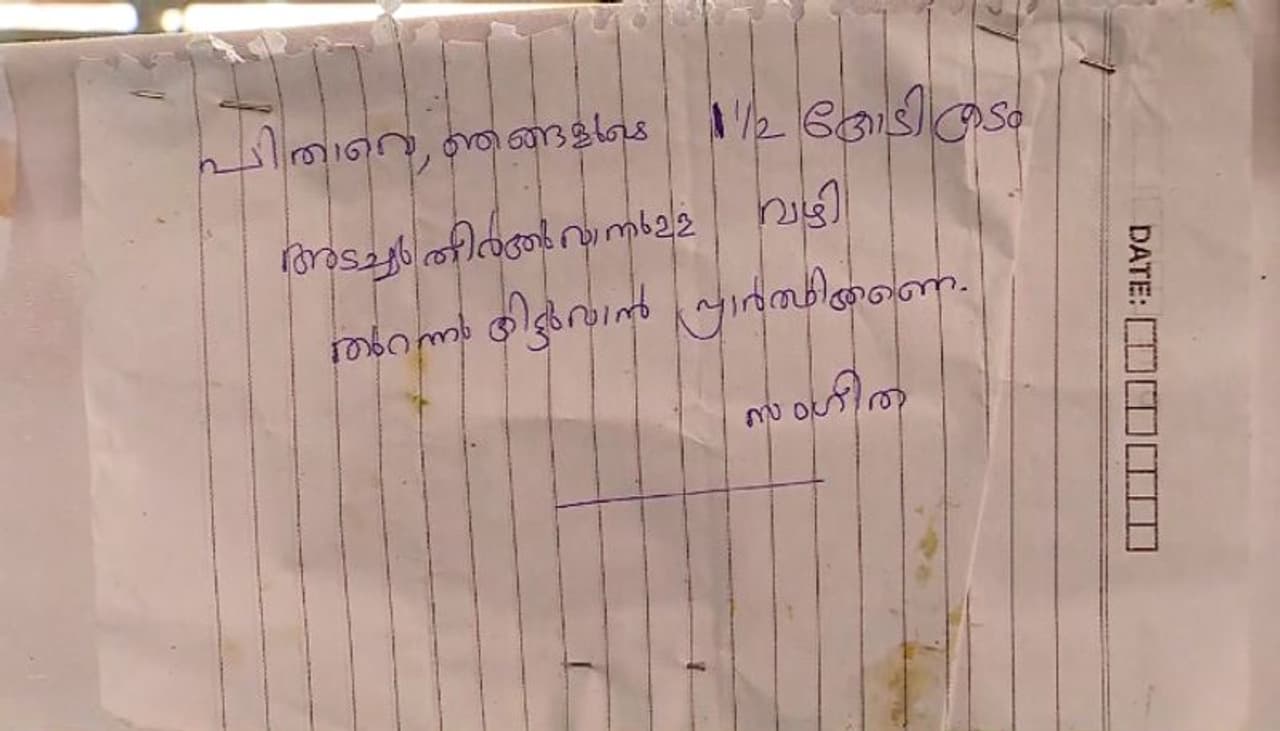 പിതാവെ, ഞങ്ങളുടെ 1 1/2 കോടി കടം
അടച്ചുതീർക്കുവാനുള്ള വഴി
തുറന്നു കിട്ടുവാൻ പ്രാർത്ഥിക്കണെ.
സംഗീത
DATE: